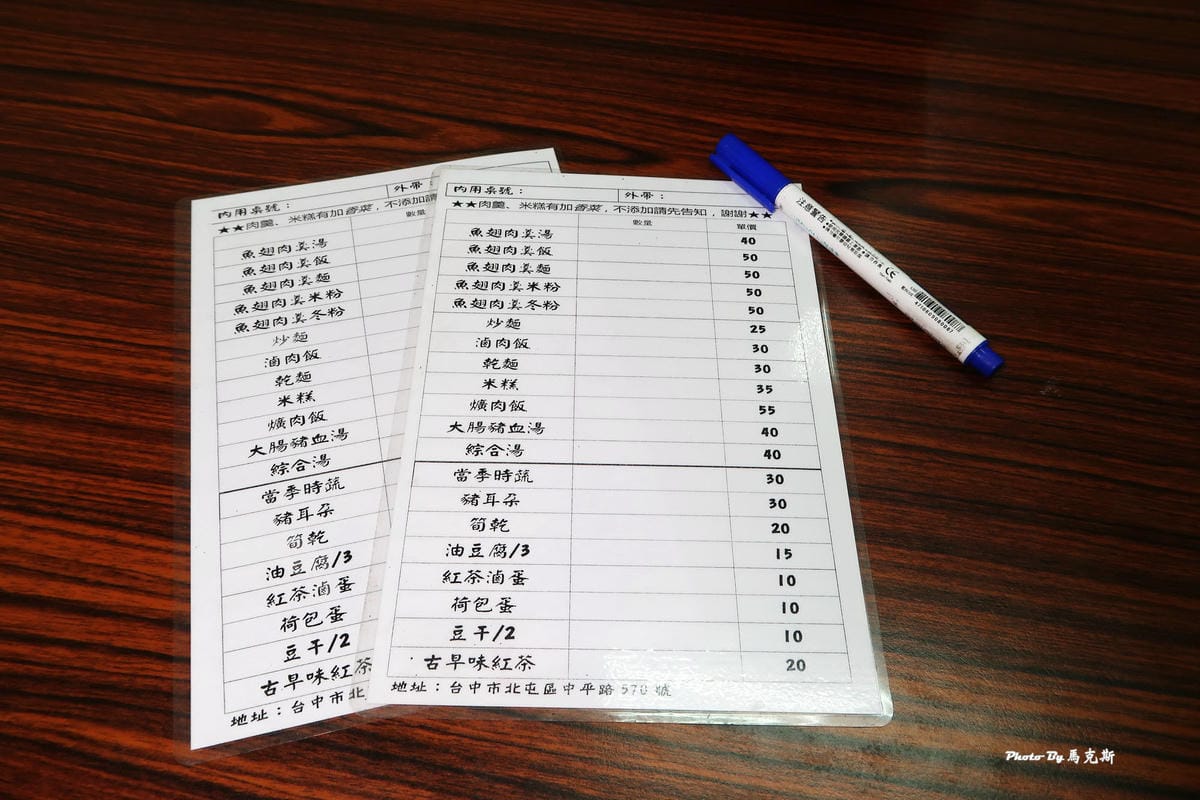 內用桌號：
外帶：
★★肉羹、米糕有加香菜,不添加請
數量
魚翅肉羹湯
魚翅肉羹飯
魚翅肉羹麵
魚翅肉羹米粉
魚翅肉羹冬粉
炒麵
滷肉飯
乾麵
米糕
爌肉飯
大腸豬血湯
綜合湯
當季時蔬
豬耳朵
筍乾
油豆腐/3
紅茶滷蛋
荷包蛋
豆干/2
古早味紅茶
地址：台中市北
內用桌號： 外帶：
★★肉羹、米糕有加香菜,不添加請先告知,謝謝★★
數量 單價
魚翅肉羹湯 40
魚翅肉羹飯 50
魚翅肉羹麵 50
魚翅肉羹米粉 50
魚翅肉羹冬粉 50
炒麵 25
滷肉飯 30
乾麵 30
米糕 35
爌肉飯 55
大腸豬血湯 40
綜合湯 40
當季時蔬 30
豬耳朵 30
筍乾 20
油豆腐/3 15
紅茶滷蛋 10
荷包蛋 10
豆干/2 10
古早味紅茶 20
地址：台中市北屯區中平路570號
注意警告
CE
Photo By 馬克斯